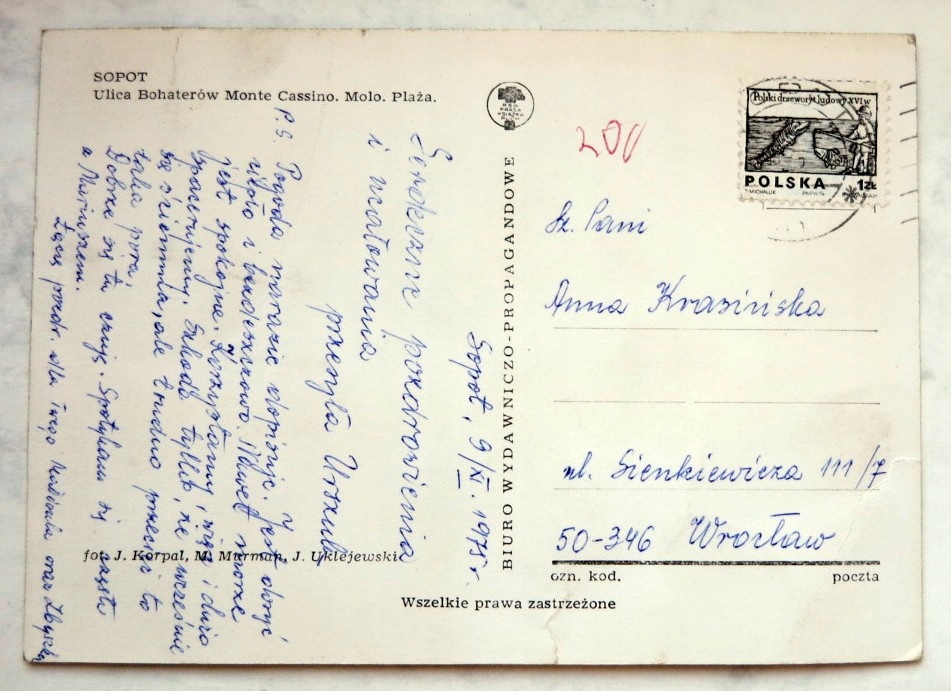 SOPOT
Ulica Bohaterów Monte Cassino. Molo. Plaża.
Sopot, 9/XI. 1975 r.
Serdeczne pozdrowienia
i ucałowania
przesyła Urszula
P.S. Pogoda narazie dopisuje. Jest dosyć
ciepło i bezdeszczowo. Nawet morze
jest spokojne. Korzystamy więc i dużo
spacerujemy. Szkoda tylko, że wcześnie
się ściemnia, ale trudno przecież to
taka pora.
Dobrze się tu czuję. Spotykam się często
z Mariuszem.
Łączę pozdr. dla Twego oraz Zbyszka
fot. J. Korpal, M. Murman, J. Uklejewski
Wszelkie prawa zastrzeżone
BIURO WYDAWNICZO-PROPAGANDOWE
RSW
PRASA
KSIĄŻKA
RUCH
200
Polski drzeworyt ludowy XVI w
POLSKA 1 ZŁ
T. MICHALUK PWPW 74
Sz. Pani
Anna Krasińska
ul. Sienkiewicza 111/7
50-346 Wrocław
ozn. kod. poczta